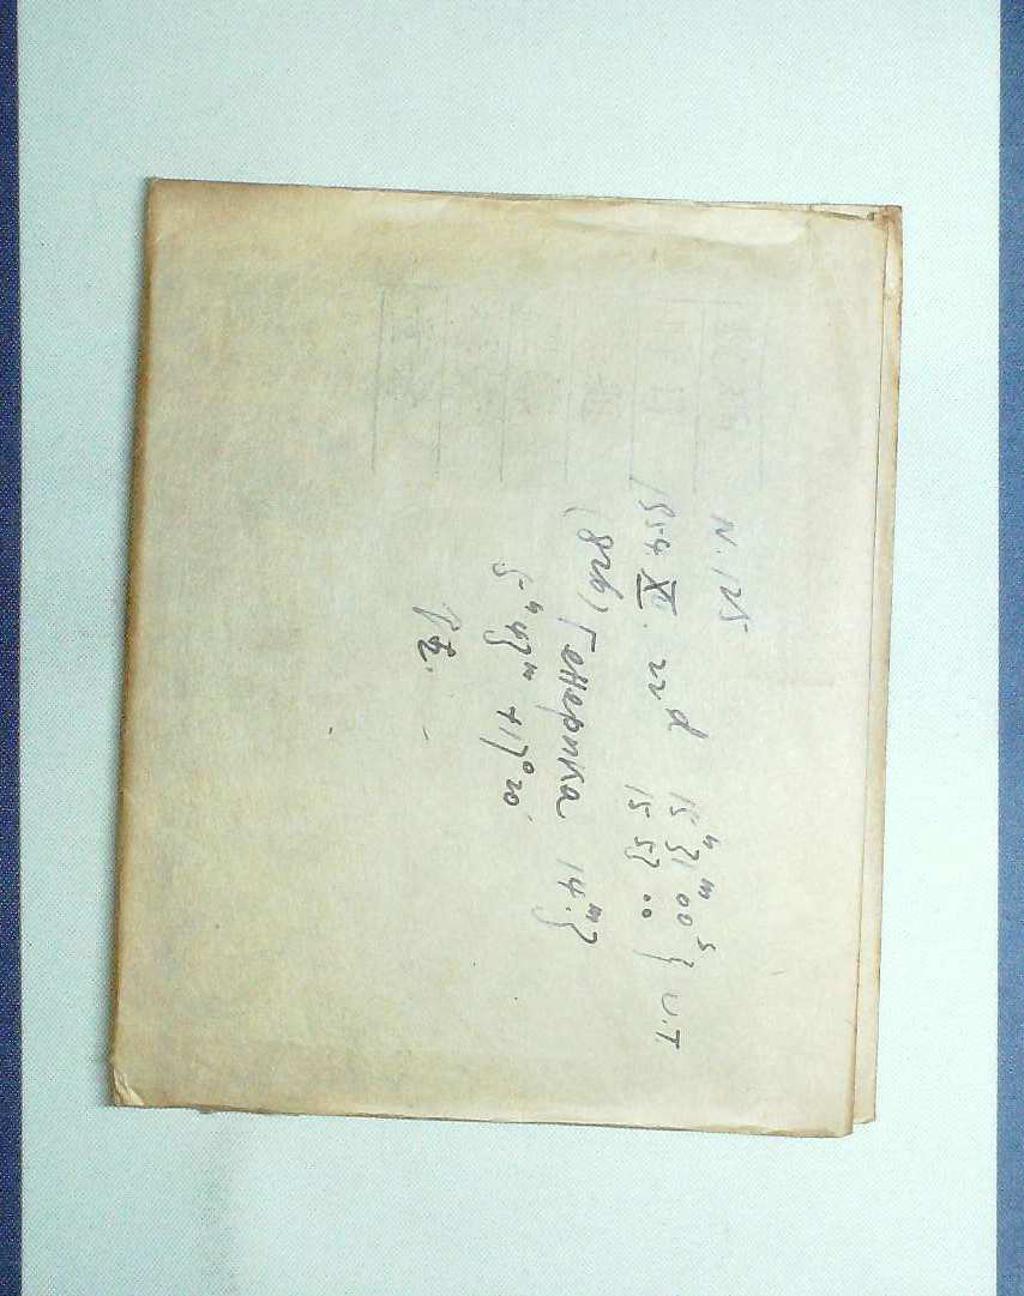 N. 125
1954 XI. 22d 15h 31m 00s } U.T
15 53 00
(826) Генерика 14.m3
5h 43m +17°20'